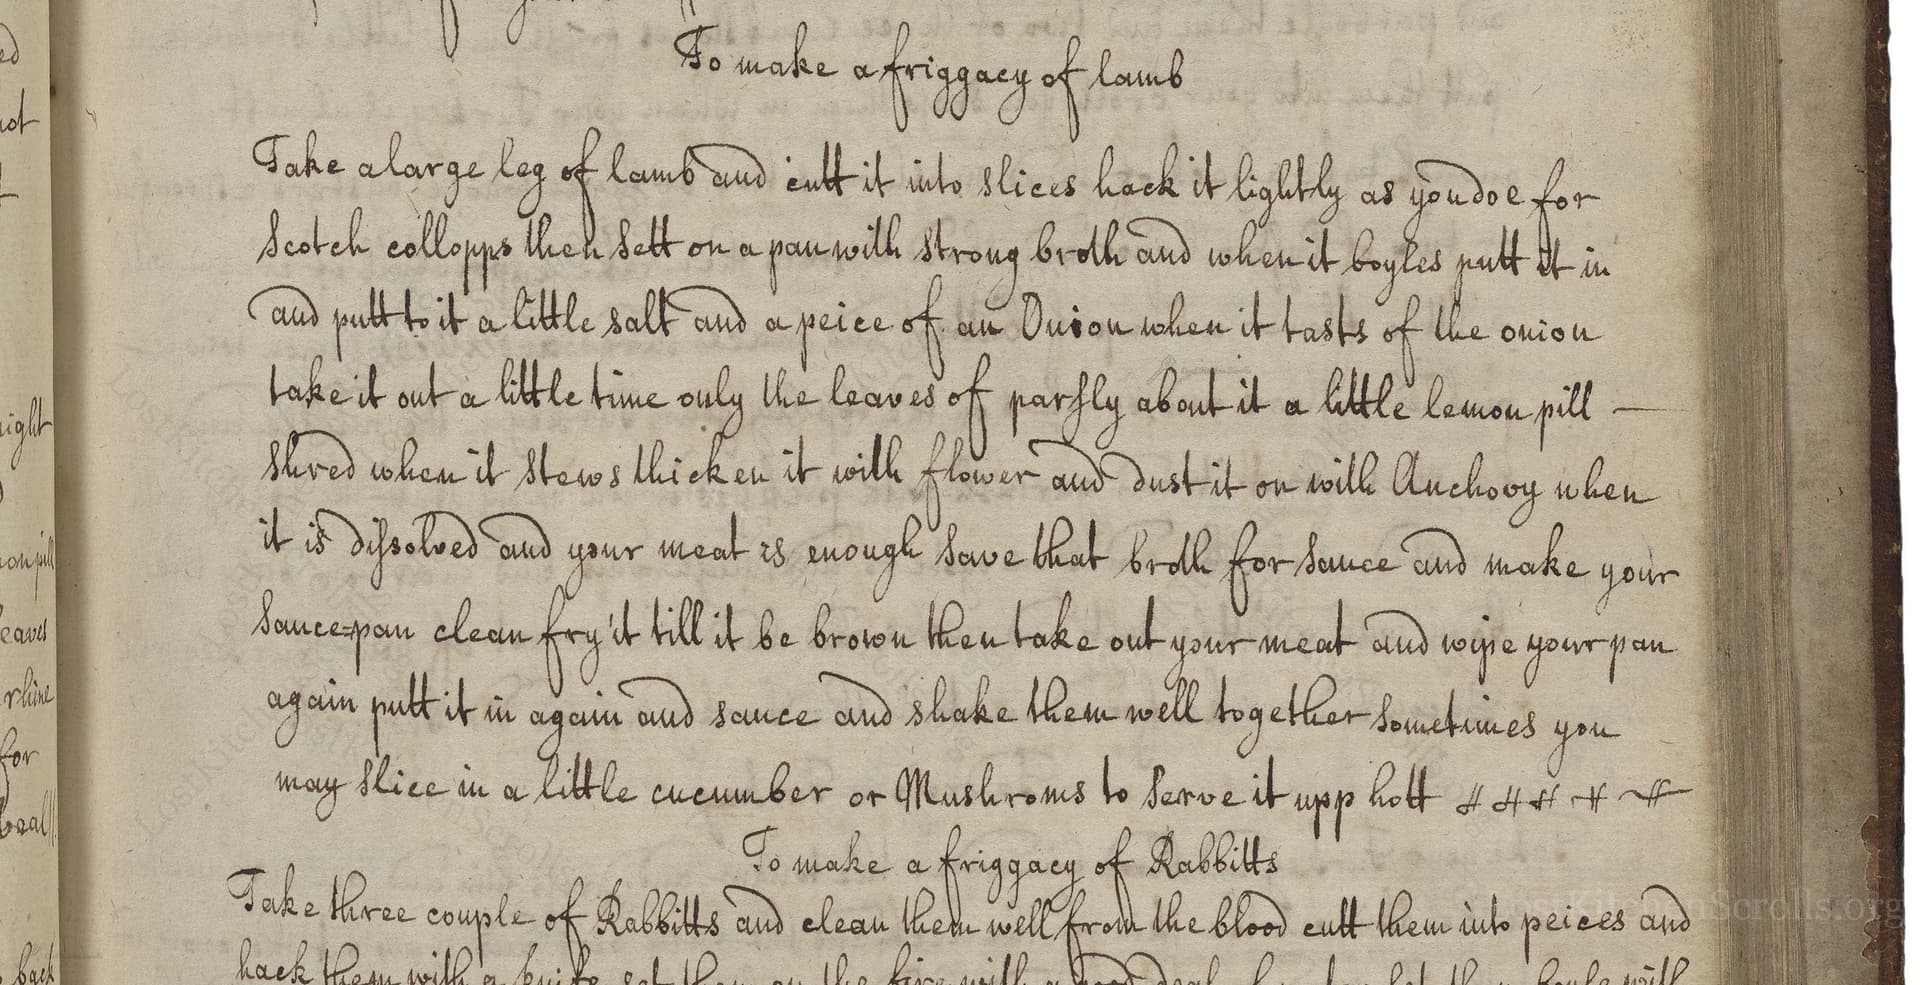 To make a friggacy of lamb
Take a large leg of lamb and cutt it into slices hack it lightly as you doe for
Scotch collopps then sett on a pan with strong broth and when it boyles putt it in
and putt to it a little salt and a peice of an Onion when it tasts of the onion
take it out a little time only the leaves of parsly about it a little lemon pill —
shred when it stews thicken it with flower and dust it on with Anchovy when
it is dissolved and your meat is enough save that broth for sauce and make your
sauce=pan clean fry it till it be brown then take out your meat and wipe your pan
again putt it in again and sauce and shake them well together sometimes you
may slice in a little cucumber or Mushroms to serve it upp hott
To make a friggacy of Rabbitts
Take three couple of Rabbitts and clean them well from the blood cutt them into peices and
hack them with a knife set them on the fire with a good deal
ight
leaves
rhine
for
back
Scrolls.org